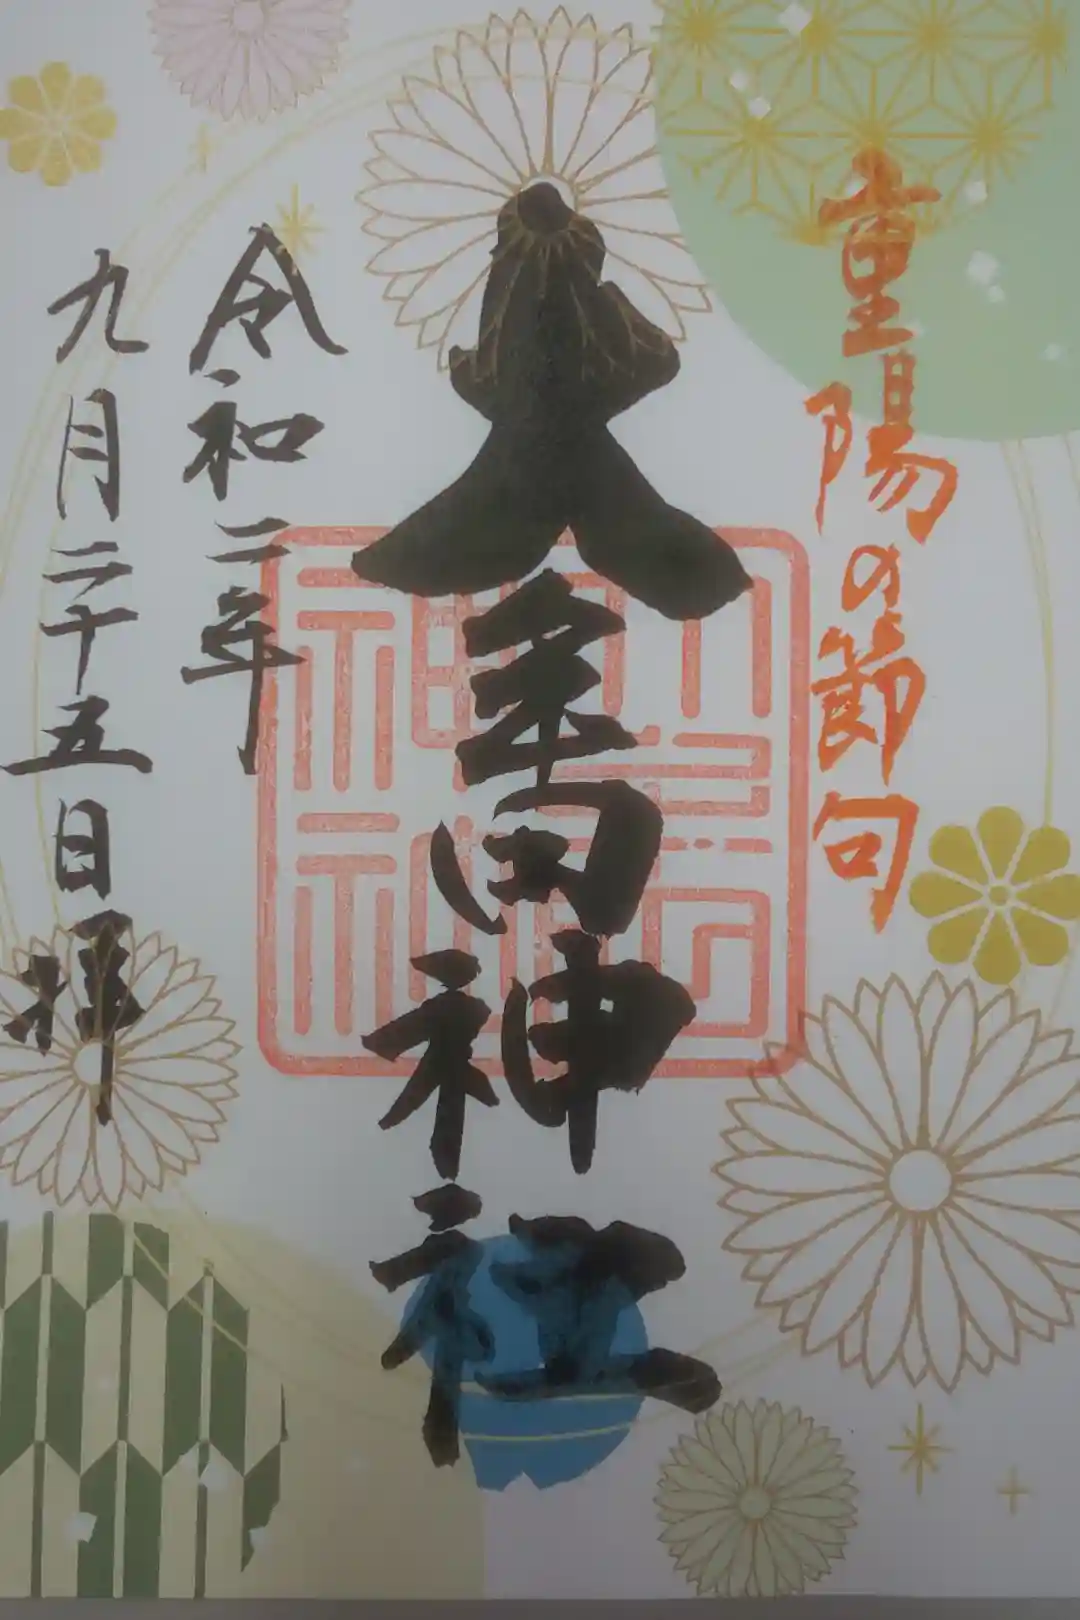 重陽の節句
神社
令和二年
九月二十五日 拝